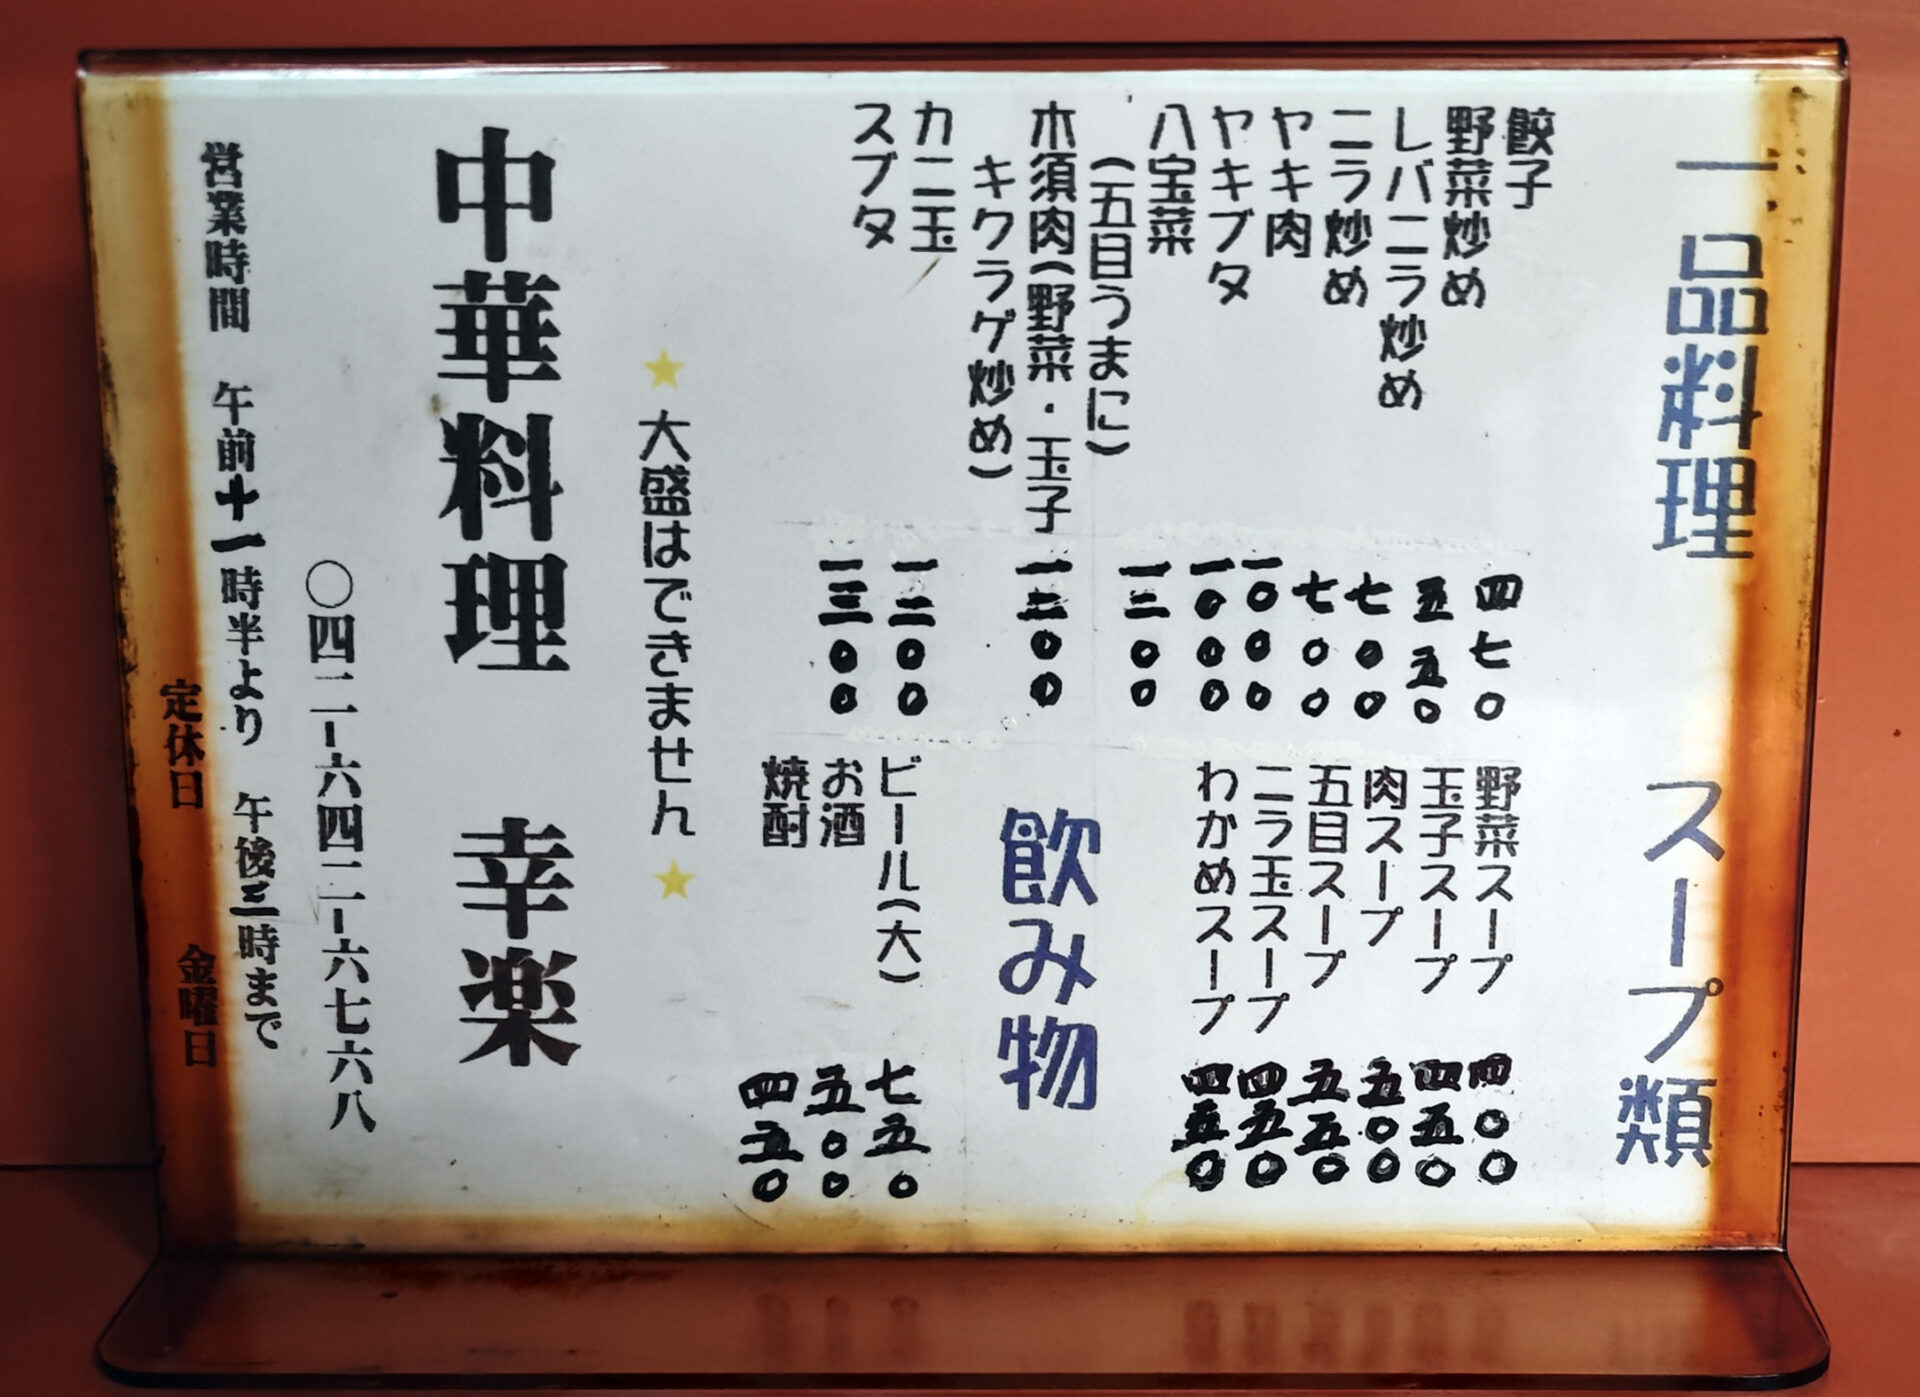 一品料理
餃子 四七〇
野菜炒め 五五〇
レバニラ炒め 七〇〇
ニラ炒め 七〇〇
ヤキ肉 一〇〇〇
ヤキブタ 一〇〇〇
八宝菜
(五目うまに) 一二〇〇
木須肉(野菜・玉子 一二〇〇
キクラゲ炒め)
カニ玉 一二〇〇
スブタ 一三〇〇
スープ類
野菜スープ 四〇〇
玉子スープ 四五〇
肉スープ 五〇〇
五目スープ 五五〇
ニラ玉スープ 四五〇
わかめスープ 四五〇
飲み物
ビール(大) 七五〇
お酒 五〇〇
焼酎 四五〇
★大盛はできません★
中華料理 幸楽
〇四二-六四二-六七六八
営業時間 午前十一時半より 午後三時まで
定休日 金曜日